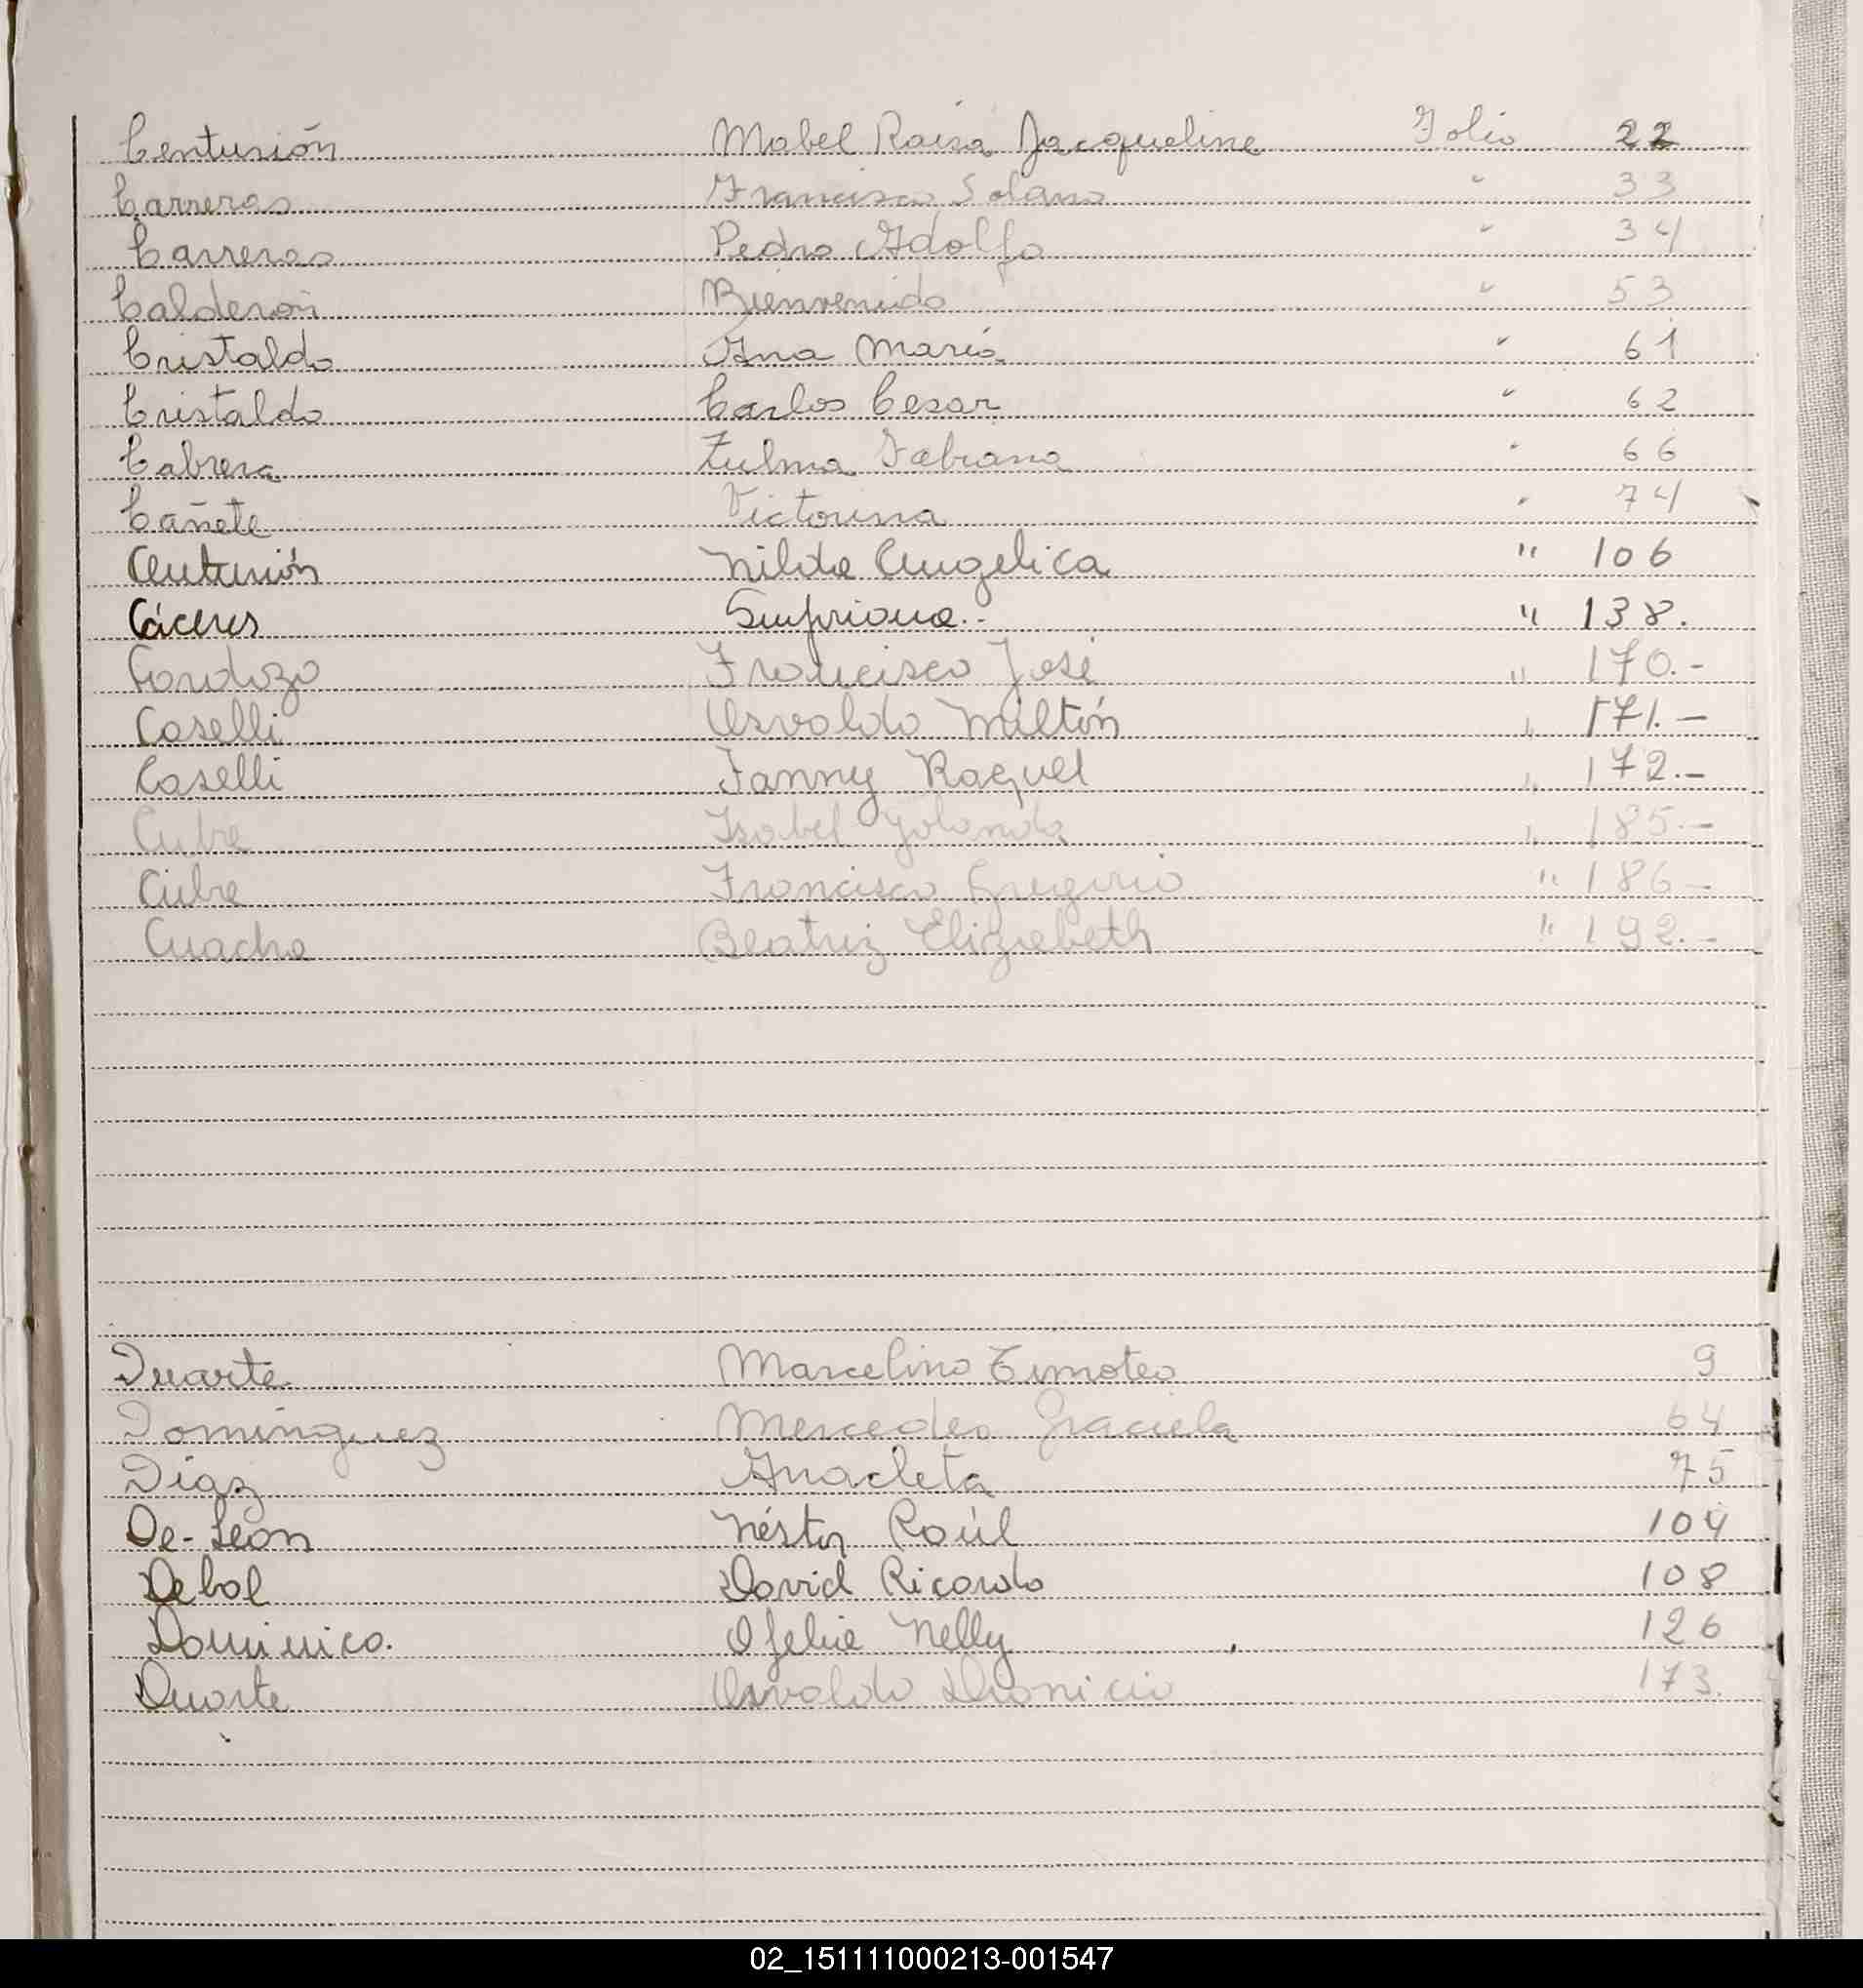 Centurión Mabel Raisa Jacqueline Folio 22
Carreras Francisco Solano " 33
Carreras Pedro Adolfo " 34
Calderón Bienvenido " 53
Cristaldo Ana María " 61
Cristaldo Carlos Cesar " 62
Cabrera Zulma Fabiana " 66
Cañete Victorina " 74
Centurión Nilda Angelica " 106
Cáceres " 138.
Cardozo Francisco José " 170.-
Caselli Osvaldo Miltón " 171.-
Caselli Fanny Raquel " 172.-
Cubre Isabel Yolanda " 185.-
Cubre Francisco Gregorio " 186-
Cuacha Beatriz Elizabeth " 192.-
Duarte Marcelino Timoteo 9
Domínguez Mercedes Graciela 64
Díaz Anacleta 75
De-León Néstor Raúl 104
Debol David Ricardo 108
Dominico. Ofelia Nelly 126
Duarte Osvaldo Dionicio 173.
02_151111000213-001547